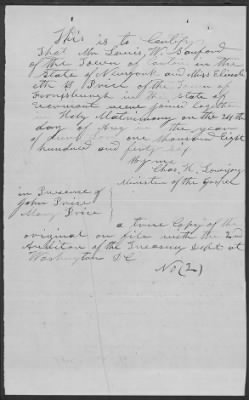 This is to Certify
That Mr Lewis W. Sanford
of the Town of in the
State of Newyork and Miss Elizab
eth S Price of the Town of
in the State of
vermont were joined togeth
in Holy Matrimony on the 24th
day of Aug in the year
of our Lord one thousand Eight
hundred and forty
By me
Chas. H. Lovejoy
Minister of the Gospel
in Presence of
John Price
Mary Price
a true Copy of the
original on file with the 2nd
Auditor of the Treasury Dept at
Washington D C
No (2)